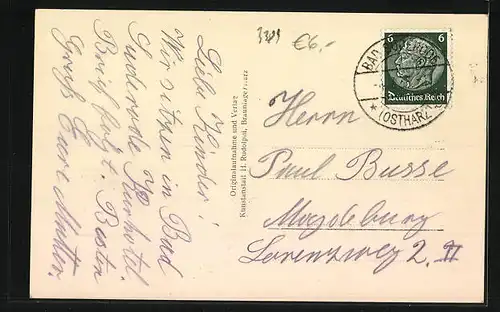 Liebe Kinder!
Wir sitzen in Bad
Suderode Kurhotel.
Brief folgt. Besten
Gruß Eure Mutter.
Originalaufnahme und Verlag
Kunstanstalt H. Rudolphi, Braunlage/Harz
3389
€6,-
6 6
Deutsches Reich
BAD SUDERODE
* (OSTHARZ) *
Herrn
Paul Busse
Magdeburg
Lorenzweg 2. II